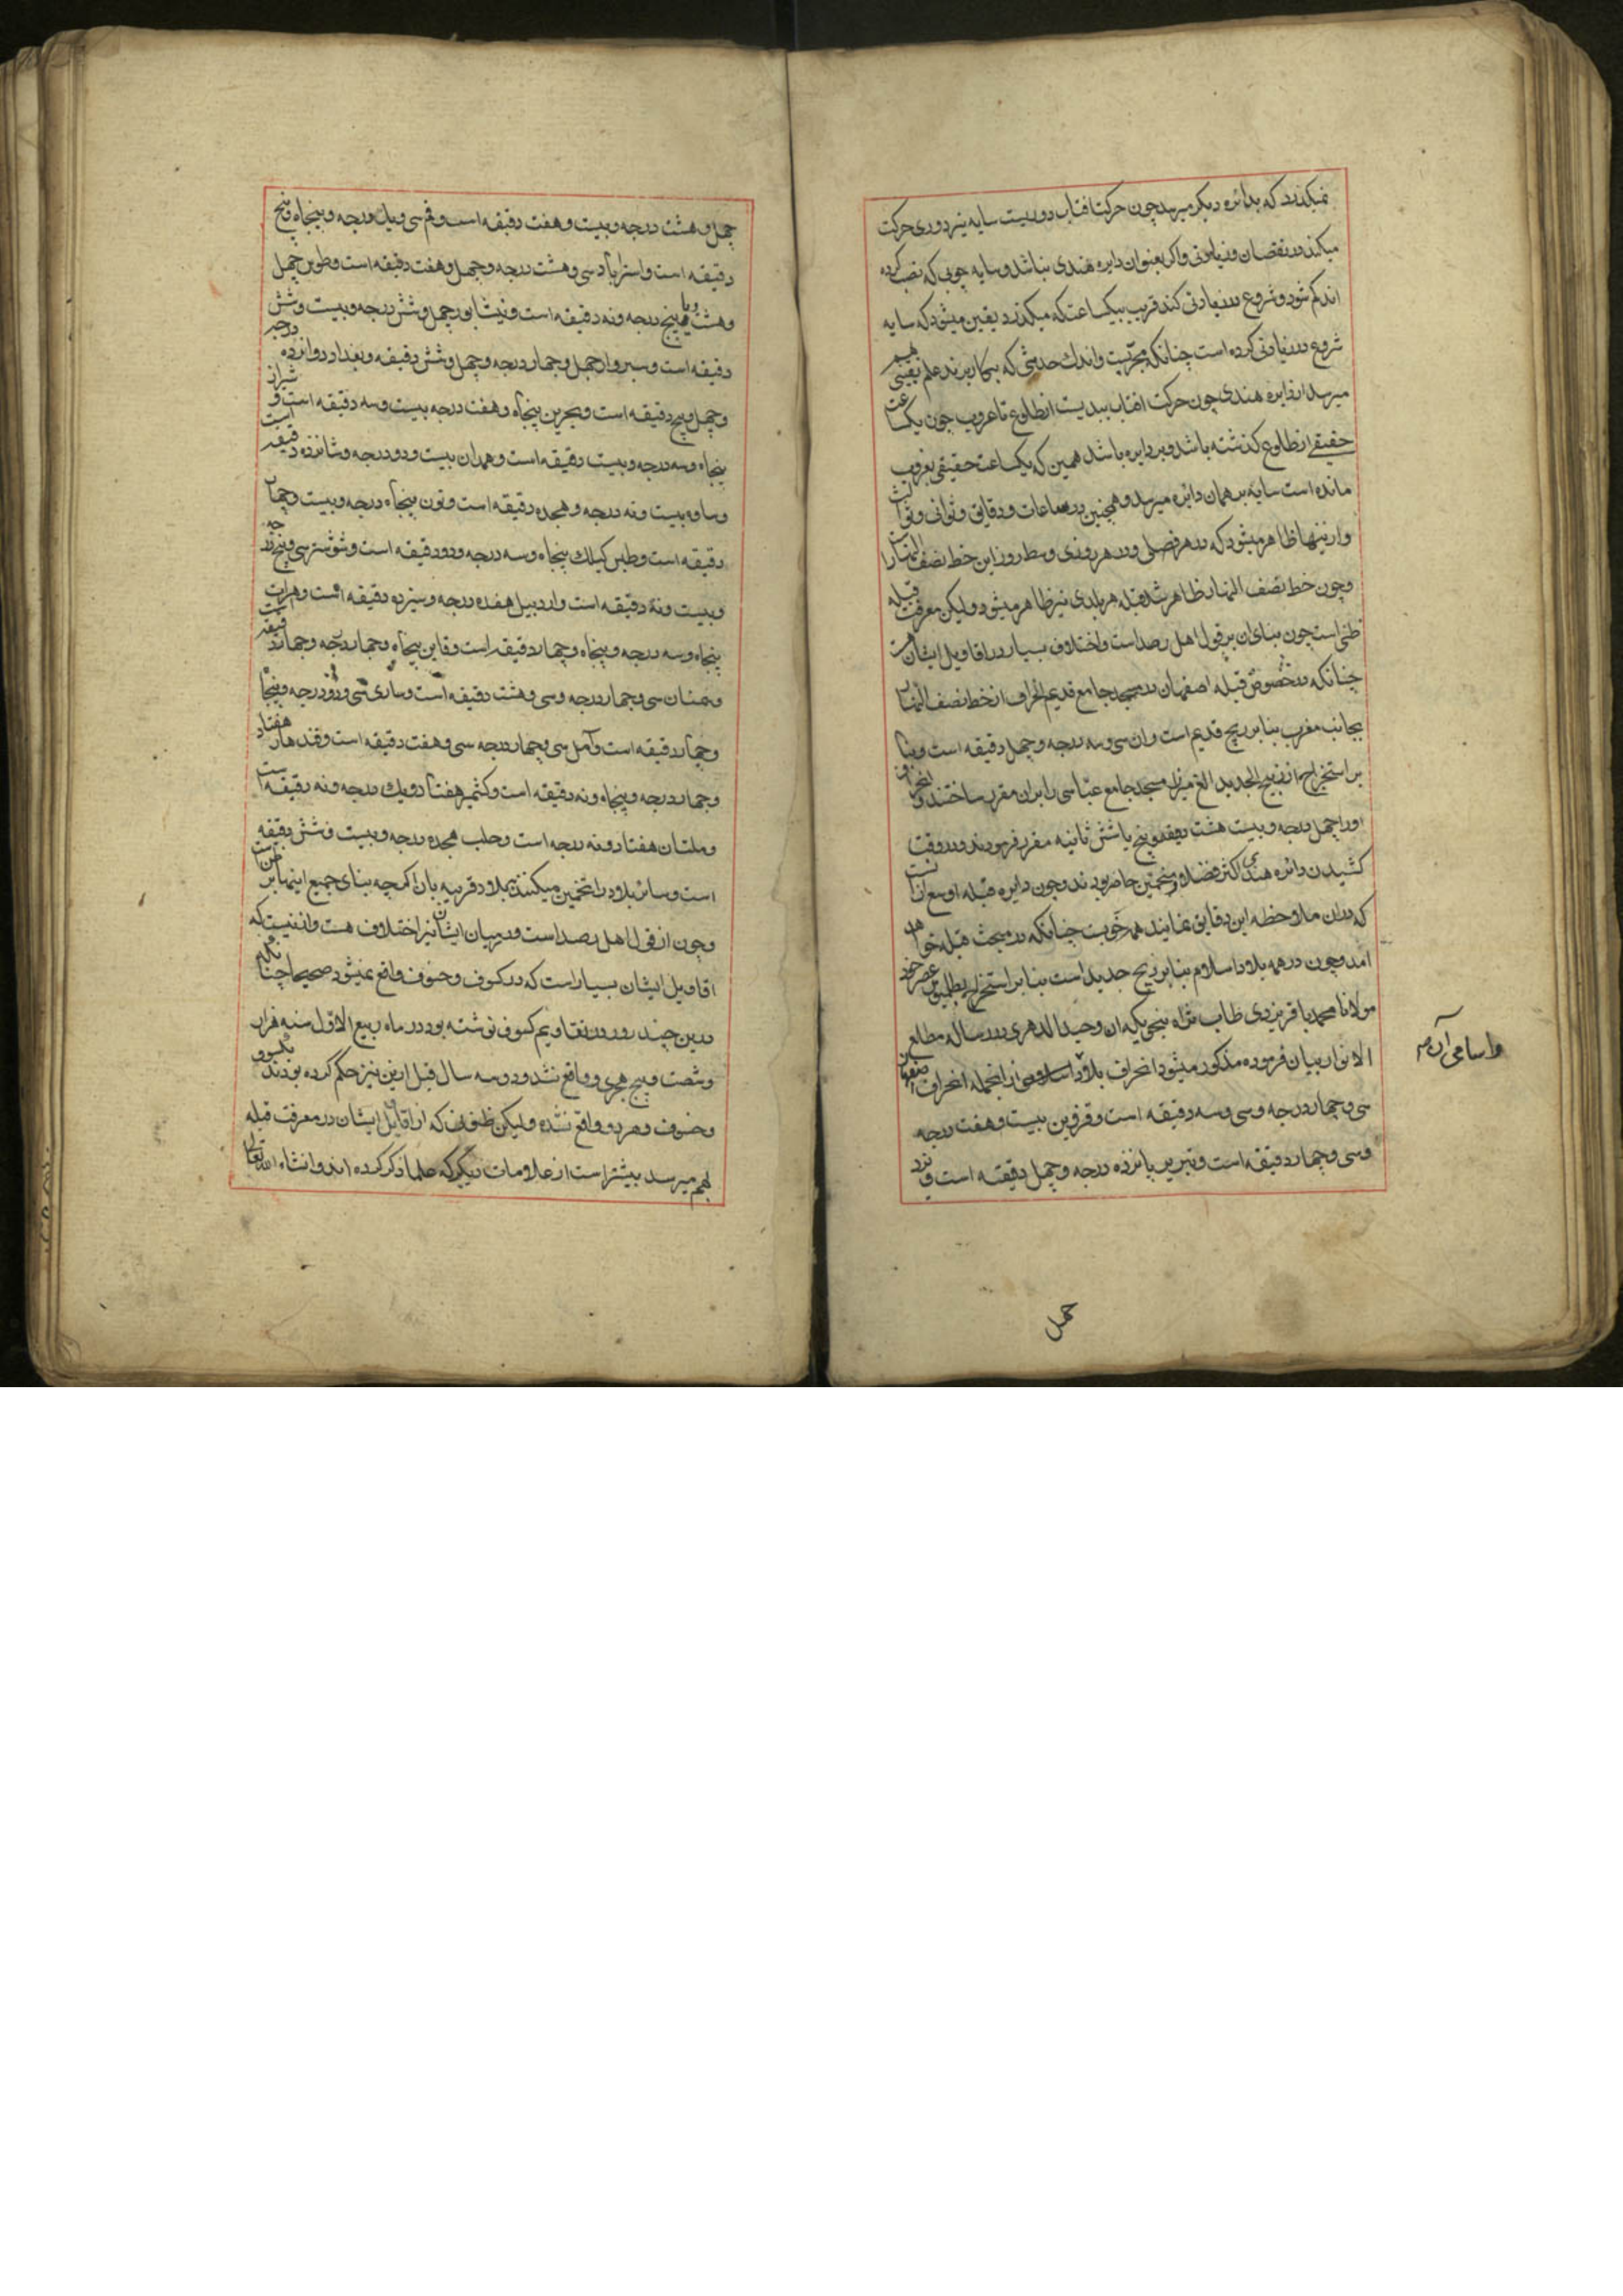 نمیکذرد که بدائره دیکر میرسد چون حرکت افتاب دوریست سایه نیز دوری حرکت
میکند در نقصان و زیادتی و اکر بعنوان دایره هندی نباشد و سایه چوبی که نصب کرده
اند کم شود و شروع در زیادتی کند قریب بیکساعت که میکذرد یقین میشود که سایه
شروع در زیادتی کرده است چنانکه مجربست و اندک حدسی که بکار برند علم یقینی بهم
میرسد از دایره هندی چون حرکت افتاب بیدیست از طلوع تا غروب چون یکساعت
حقیقی از طلوع کذشته باشد و بر دایره باشد همین که یکساعت حقیقی بغروب
مانده است سایه بر همان دائره میرسد و همچنین در ساعات و دقایق و ثوانی و ثوالث
و ازینها ظاهر میشود که در هر فصلی و در هر روزی وسط روز این خط نصف النهار را
و چون خط نصف النهار ظاهر شد قبله هر بلدی نیز ظاهر میشود ولیکن معرفت قبله
ظنی است چون بنای ان بر قول اهل رصد است و اختلاف بسیار در اقاویل ایشان هست
چنانکه در خصوص قبله اصفهان در مسجد جامع قدیم انحراف از خط نصف النهار
بجانب مغرب بنا بر زیج قدیم است و ان سی و سه درجه و چهل دقیقه است و بنا
بر استخراج از زیج الجدید الغ میرزا مسجد جامع عباسی را بران مقرر ساختند و انحراف
اورا چهل درجه و بیست هشت دقیقه و پنج یا شش ثانیه مقرر فرمودند و در وقت
کشیدن دائره هندی اکثر فضلا و منجمین حاضر بودند و چون دایره قبله اوسع از انست
که دران ملاحظه این دقایق نمایند همه خوبست چنانکه در مبحث قبله خواهد
امد و چون در همه بلاد اسلام بنا بر زیج جدید است بنا بر استخراج بطلمیوس عصر خود
مولانا محمد باقر یزدی طاب ثراه بنحوی که ان وحید الدهری در رساله مطالع
الانوار بیان فرموده مذکور میشود انحراف بلاد اسلام و اسامی آن از انجمله انحراف اصفهان
سی و چهار درجه و سی و سه دقیقه است و قزوین بیست و هفت درجه
و سی و چهار دقیقه است و تبریز پانزده درجه و چهل دقیقه است و یزد
چهل
چهل و هشت درجه و بیست و هفت دقیقه است و قم سی و یک درجه و پنجاه پنج
دقیقه است و استراباد سی و هشت درجه و چهل و هفت دقیقه است و طوس چهل
و هشت و یا پنج درجه ونه دقیقه است و نیشابور چهل و شش درجه و بیست و شش
دقیقه است و سبزوار چهل و چهار درجه و چهل و شش دقیقه و بغداد دوازده درجه
و چهل و پنج دقیقه است و بحرین پنجاه و هفت درجه بیست و سه دقیقه است و شیراز
پنجاه و سه درجه و بیست دقیقه است و همدان بیست و دو درجه و شانزده دقیقه است
و ساوه بیست و نه درجه و هجده دقیقه است و تون پنجاه درجه و بیست و چهار
دقیقه است و طبس کیلک پنجاه و سه درجه و دو دقیقه است و شوشتر سی و پنج درجه
و بیست و نه دقیقه است و اردبیل هفده درجه و سیزده دقیقه است و هرات
پنجاه و سه درجه و پنجاه و چهار دقیقه است و قاین پنجاه و چهار درجه و چهار دقیقه است
و سمنان سی و چهار درجه و سی و هشت دقیقه است و ساری سی و دو درجه و پنجاه
و چهار دقیقه است و آمل سی و چهار درجه سی و هفت دقیقه است و قندهار هفتاد
و چهار درجه و پنجاه و نه دقیقه است و کشمیر هفتاد و یک درجه و نه دقیقه است
و ملتان هفتاد و نه درجه است و حلب هجده درجه و بیست و شش دقیقه
است و سائر بلاد را تخمین میکنند ببلاد قریبه بان اکرچه بنای جمیع اینها بر ظن است
و چون از قول اهل رصد است و در میان ایشان نیز اختلاف هست و انفنیست که
اقاویل ایشان بسیار است که در کسوف و خسوف واقع نمیشود صحیحا چنانکه
درین چند روز در تقاویم کسوف نوشته بود در ماه ربیع الاول سنه هزار
و شصت و پنج هجری و واقع نشد و دو سه سال قبل ازین نیز حکم کرده بودند بکسوف
و خسوف و هر دو واقع نشد ولیکن ظنونی که از اقاویل ایشان در معرفت قبله
بهم میرسد بیشتر است از علامات دیکر که علما ذکر کرده اند و انشاء الله تعالی
واسامی آن